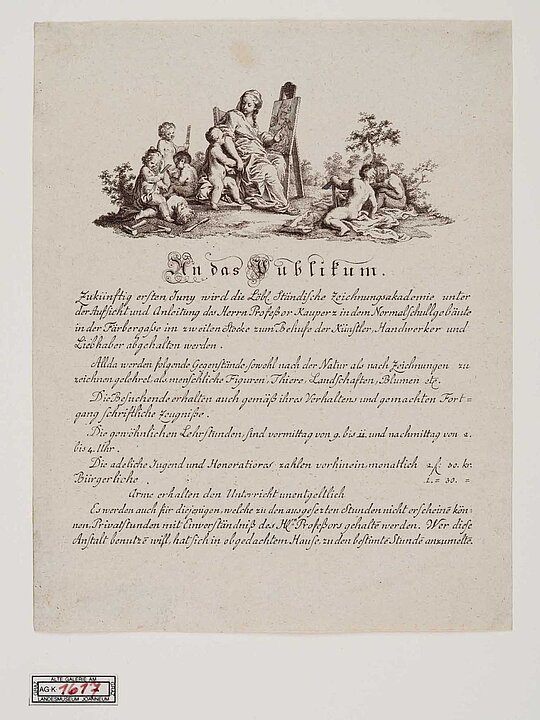 An das Publikum.
Zukünftig ersten Juny wird die Löbl. Ständische Zeichnungsakademie unter
der Aufsicht und Anleitung des Herrn Profeßor Kauperz in dem Normalschullgebäude
in der Färbergaße im zweiten Stocke zum Behufe der Künstler, Handwerker und
Liebhaber abgehalten werden.
Allda werden folgende Gegenstände, sowohl nach der Natur als nach Zeichnungen zu
zeichnen gelehret, als menschliche Figuren, Thiere, Landschaften, Blumen etz.
Die Besuchende erhalten auch gemäß ihres Verhaltens und gemachten Fort=
gang schriftliche Zeugniße.
Die gewöhnlichen Lehrstunden sind vormittag von 9. bis 11. und nachmittag von 2.
bis 4. Uhr.
Die adeliche Jugend und Honoratiores zahlen vorhinein monatlich 2. f: 30. kr:
Bürgerliche . . . 1. = 30. =
Arme erhalten den Unterricht unentgeltlich
Es werden auch für diejenigen, welche zu den ausgesezten Stunden nicht erscheinē kön=
nen, Privatstunden mit Einverständniß des H:rn Profeßors gehaltē werden. Wer diese
Anstalt benutzē will, hat sich in obgedachtem Hause, zu den bestimtē Stunde anzumeltē.
ALTE GALERIE AM
AG K 1617
LANDESMUSEUM JOANNEUM